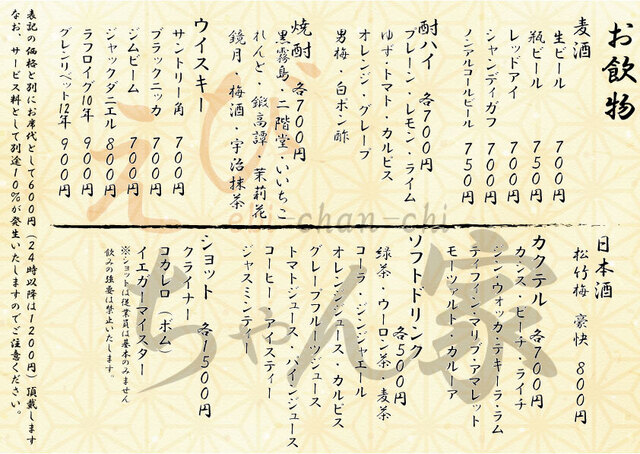 お飲物
麦酒
生ビール 700円
瓶ビール 750円
レッドアイ 700円
シャンディガフ 700円
ノンアルコールビール 750円
酎ハイ 各700円
プレーン・レモン・ライム
ゆず・トマト・カルピス
オレンジ・グレープ
男梅・白ポン酢
焼酎 各700円
黒霧島・二階堂・いいちこ
れんと・鍛高譚・茉莉花
鏡月・梅酒・宇治抹茶
ウイスキー
サントリー角 700円
ブラックニッカ 700円
ジムビーム 700円
ジャックダニエル 800円
ラフロイグ10年 900円
グレンリベット12年 900円
日本酒
松竹梅 豪快 800円
カクテル 各700円
カシス・ピーチ・ライチ
ジン・ウォッカ・テキーラ・ラム
ティフィン・マリブ・アマレット
モーツァルト・カルーア
ソフトドリンク 各500円
緑茶・ウーロン茶・麦茶
コーラ・ジンジャエール
オレンジジュース・カルピス
グレープフルーツジュース
トマトジュース・パインジュース
コーヒー・アイスティー
ジャスミンティー
ショット 各1500円
クライナー
コカレロ(ボム)
イエガーマイスター
※ショットは従業員は基本のみません
飲みの強要は禁止いたします。
表記の価格と別にお席代として600円(24時以降は1200円)頂戴します
なお、サービス料として別途10%が発生いたしますのでご注意ください。
えび
ebi-chan-chi
ちゃん家